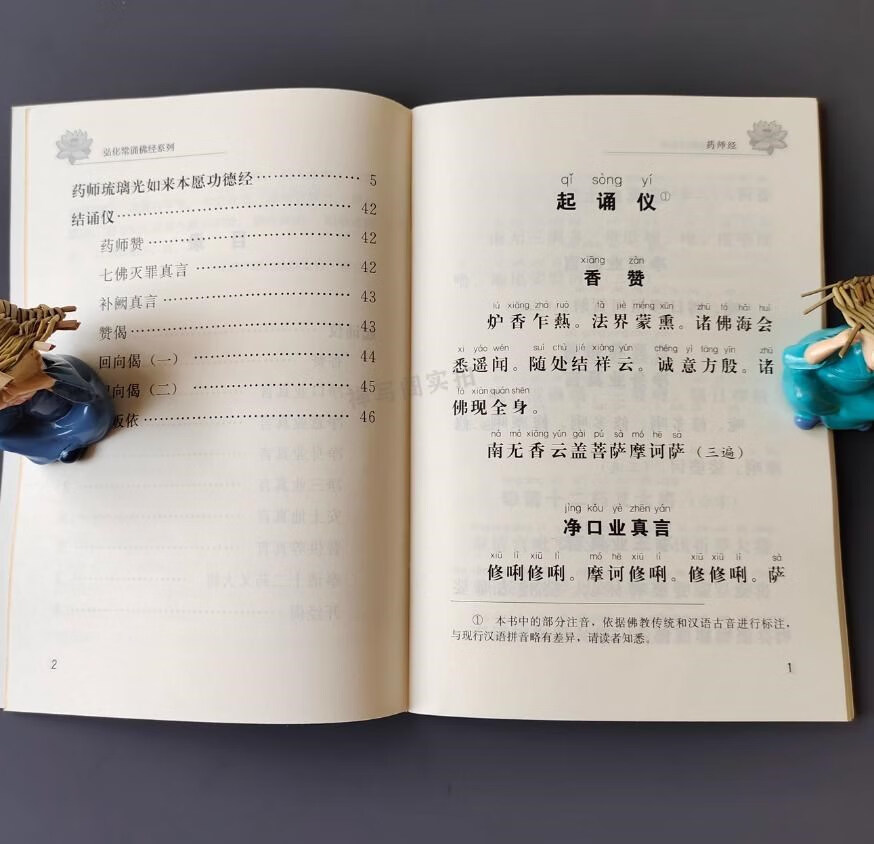 弘化常诵佛经系列
药师琉璃光如来本愿功德经………………… 5
结诵仪……………………………………… 42
药师赞………………………………… 42
七佛灭罪真言………………………… 42
补阙真言……………………………… 43
赞偈…………………………………… 43
回向偈（一）………………………… 44
向偈（二）………………………… 45
皈依…………………………………… 46
2
药师经
qǐ sòng yí
起诵仪①
xiāng zàn
香赞
lú xiāng zhà ruò fǎ jiè méng xūn zhū fó hǎi huì
炉香乍爇。法界蒙熏。诸佛海会
xī yáo wén suí chù jié xiáng yún chéng yì fāng yīn zhū
悉遥闻。随处结祥云。诚意方殷。诸
fó xiàn quán shēn
佛现全身。
ná mó xiāng yún gài pú sà mó hē sà
南无香云盖菩萨摩诃萨（三遍）
jìng kǒu yè zhēn yán
净口业真言
xiū lì xiū lì mó hē xiū lì xiū xiū lì sà
修唎修唎。摩诃修唎。修修唎。萨
① 本书中的部分注音，依据佛教传统和汉语古音进行标注，
与现行汉语拼音略有差异，请读者知悉。
1